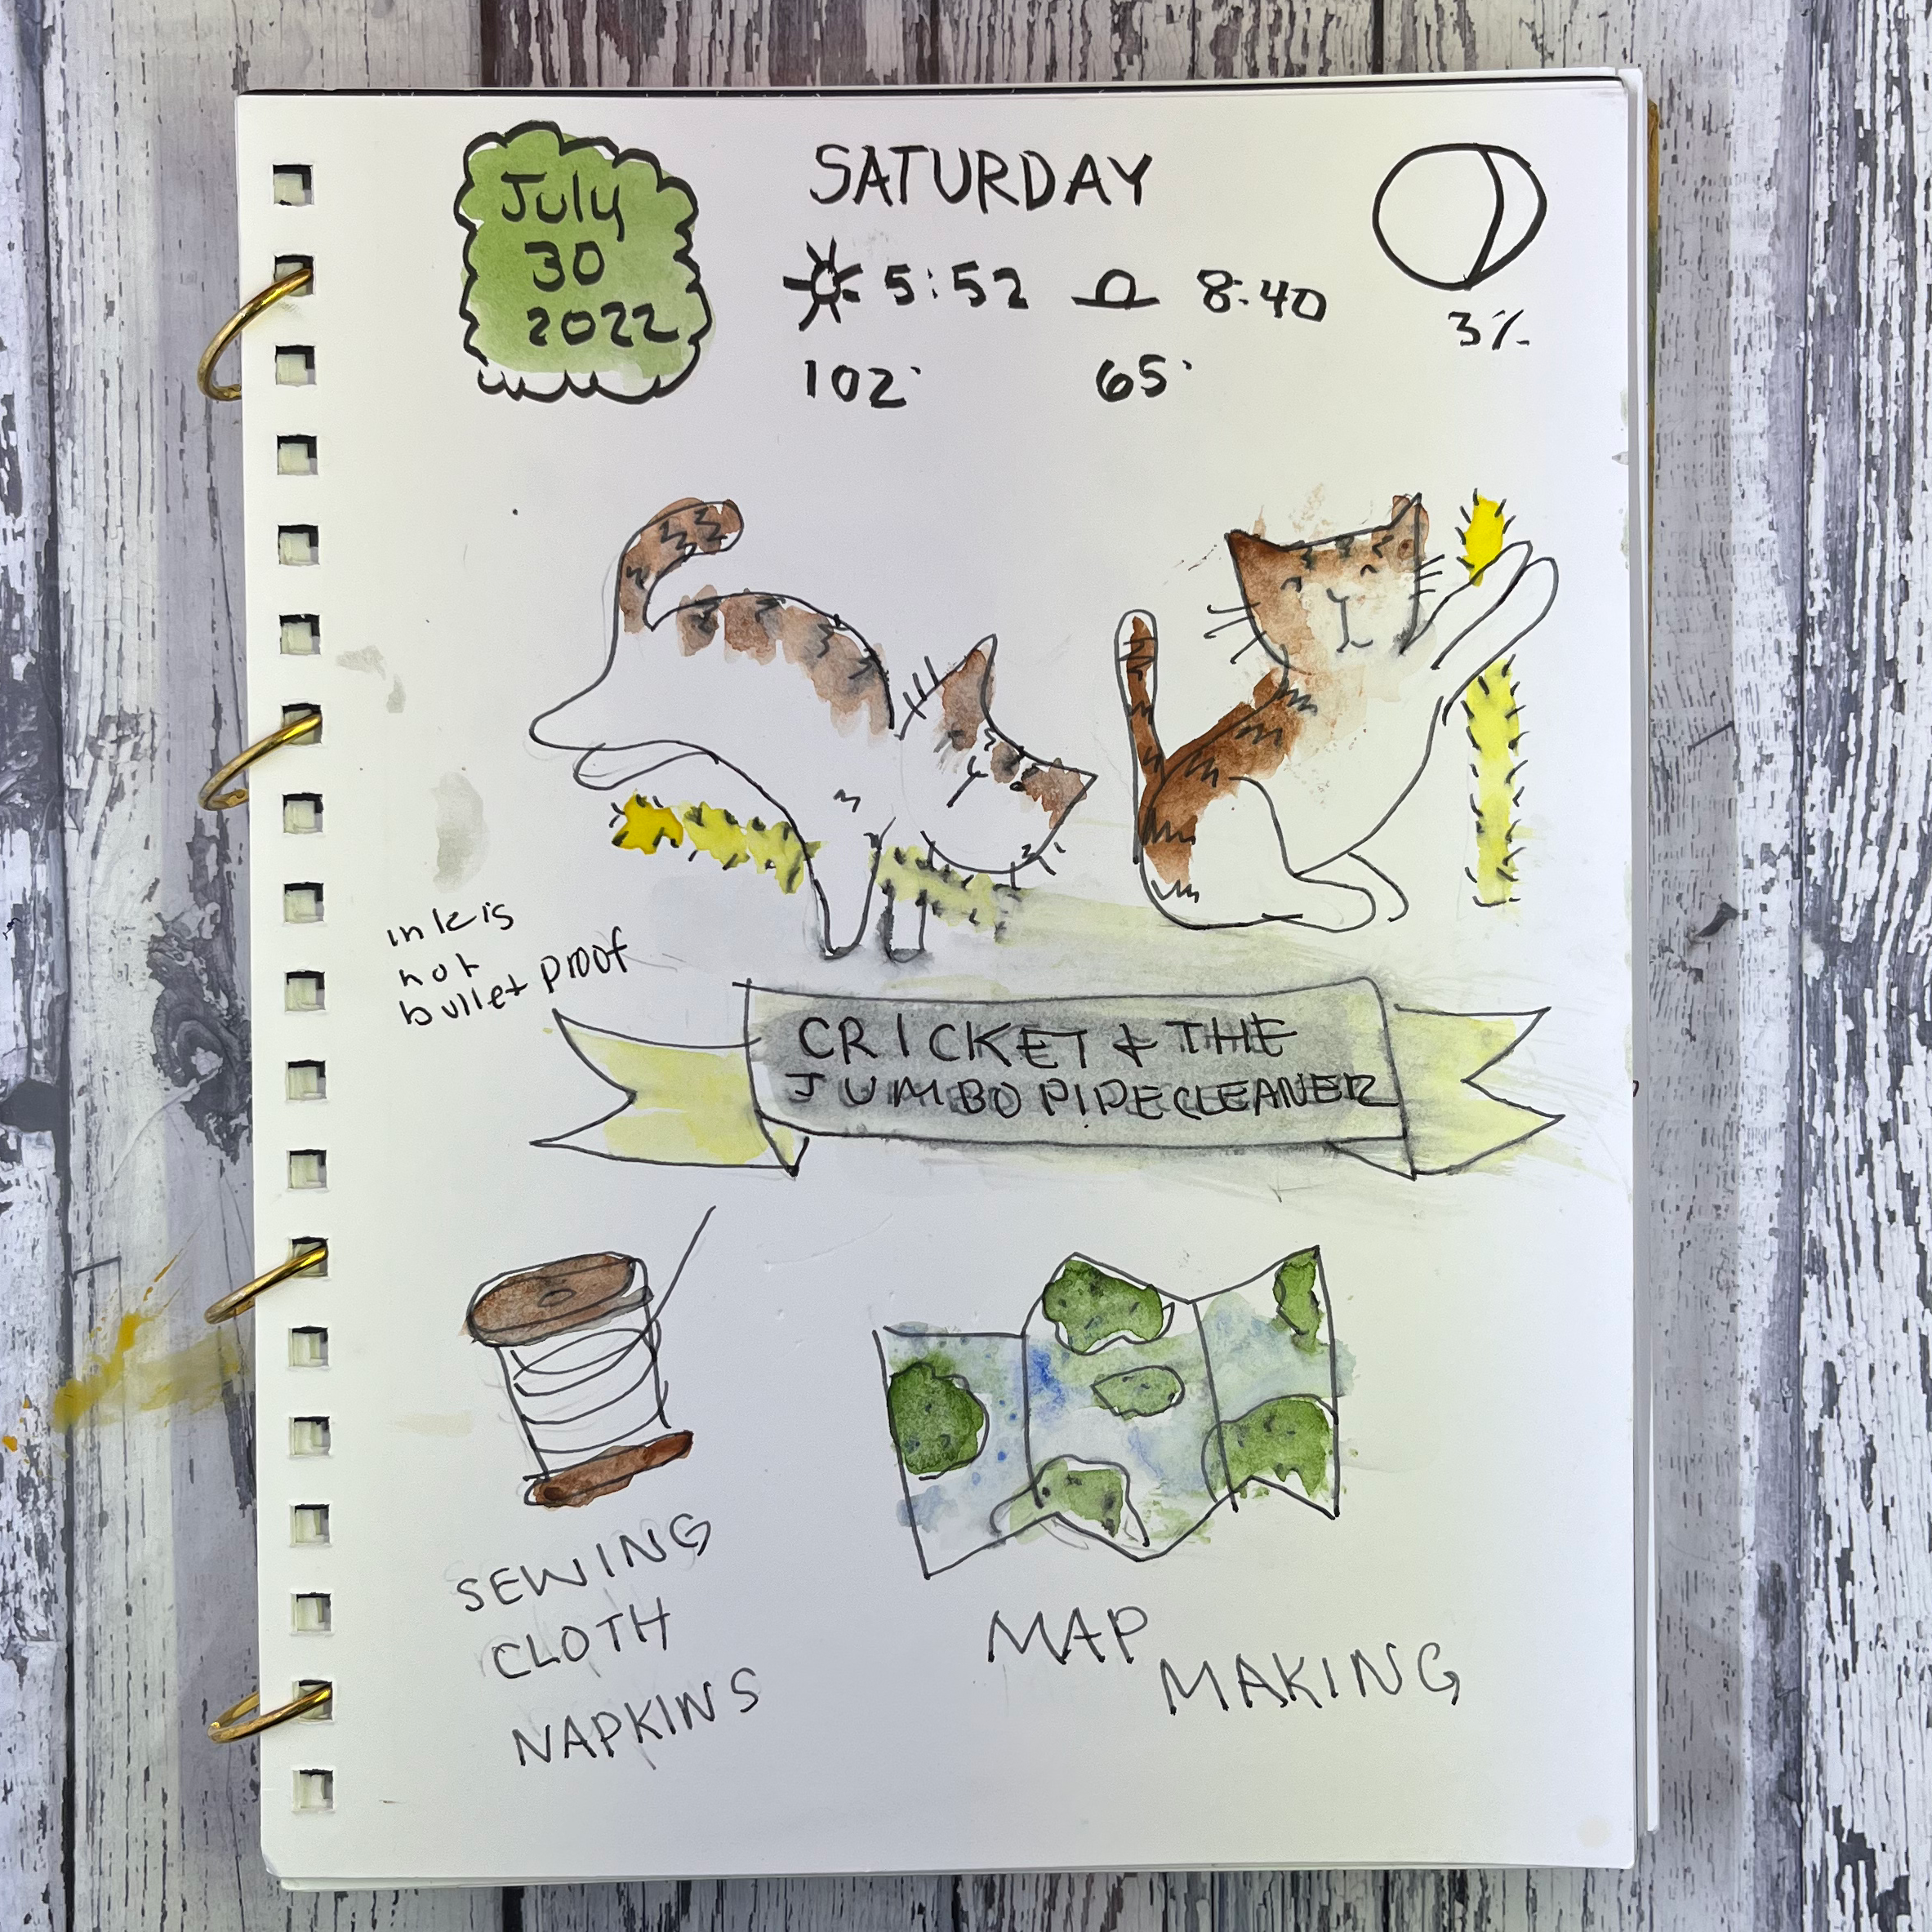 July
30
2022
SATURDAY
5:52 8:40
102° 65°
3%
ink is
not
bullet proof
CRICKET & THE
JUMBO PIPECLEANER
SEWING
CLOTH
NAPKINS
MAP
MAKING